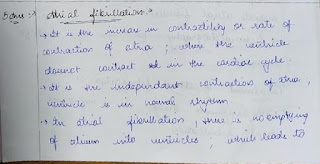 5 Ans :→ Atrial fibrillation :-
→ It is the increase in contractility or rate of
contraction of atria ; where the ventricle
doesnot contract in the cardiac cycle.
→ It is the independant contraction of atria,
ventricle is in normal rhythm.
→ In atrial fibrillation, there is no emptying
of atrium into ventricles, which leads to